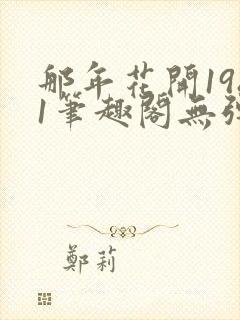 那年花開19
1筆趣閣無
鄭莉